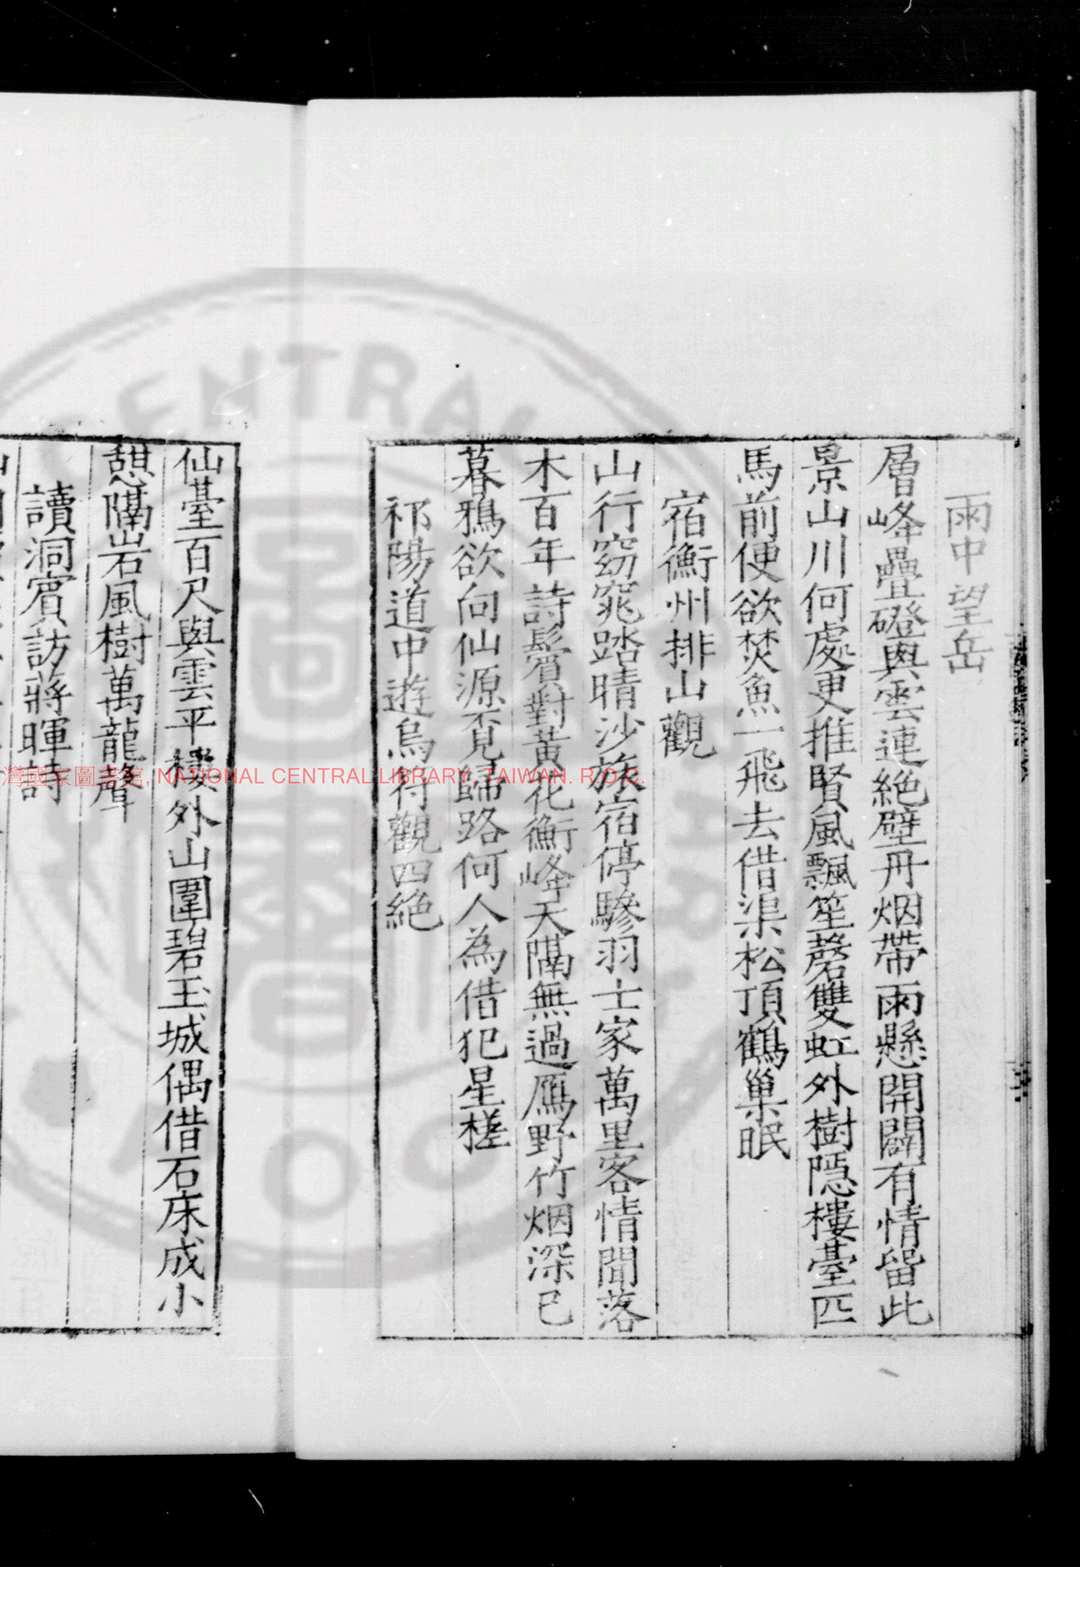 雨中望岳
層峰疊磴與雲連絕壁丹烟帶雨懸開闢有情留此
景山川何處更推賢風飄笙磬雙虹外樹隱樓臺匹
馬前便欲焚魚一飛去借渠松頂鶴巢眠
宿衡州排山觀
山行窈窕踏晴沙旅宿停驂羽士家萬里客情聞落
木百年詩鬢對黃花衡峰天隔無過鴈野竹烟深已
暮鴉欲向仙源覔歸路何人為借犯星槎
祁陽道中遊烏符觀四絕
仙臺百尺與雲平樓外山圍碧玉城偶借石床成小
憇隔岩風樹萬龍聲
讀洞賓訪蔣暉詩
灣國家圖書館, NATIONAL CENTRAL LIBRARY, TAIWAN. R.O.C.
CENTRAL